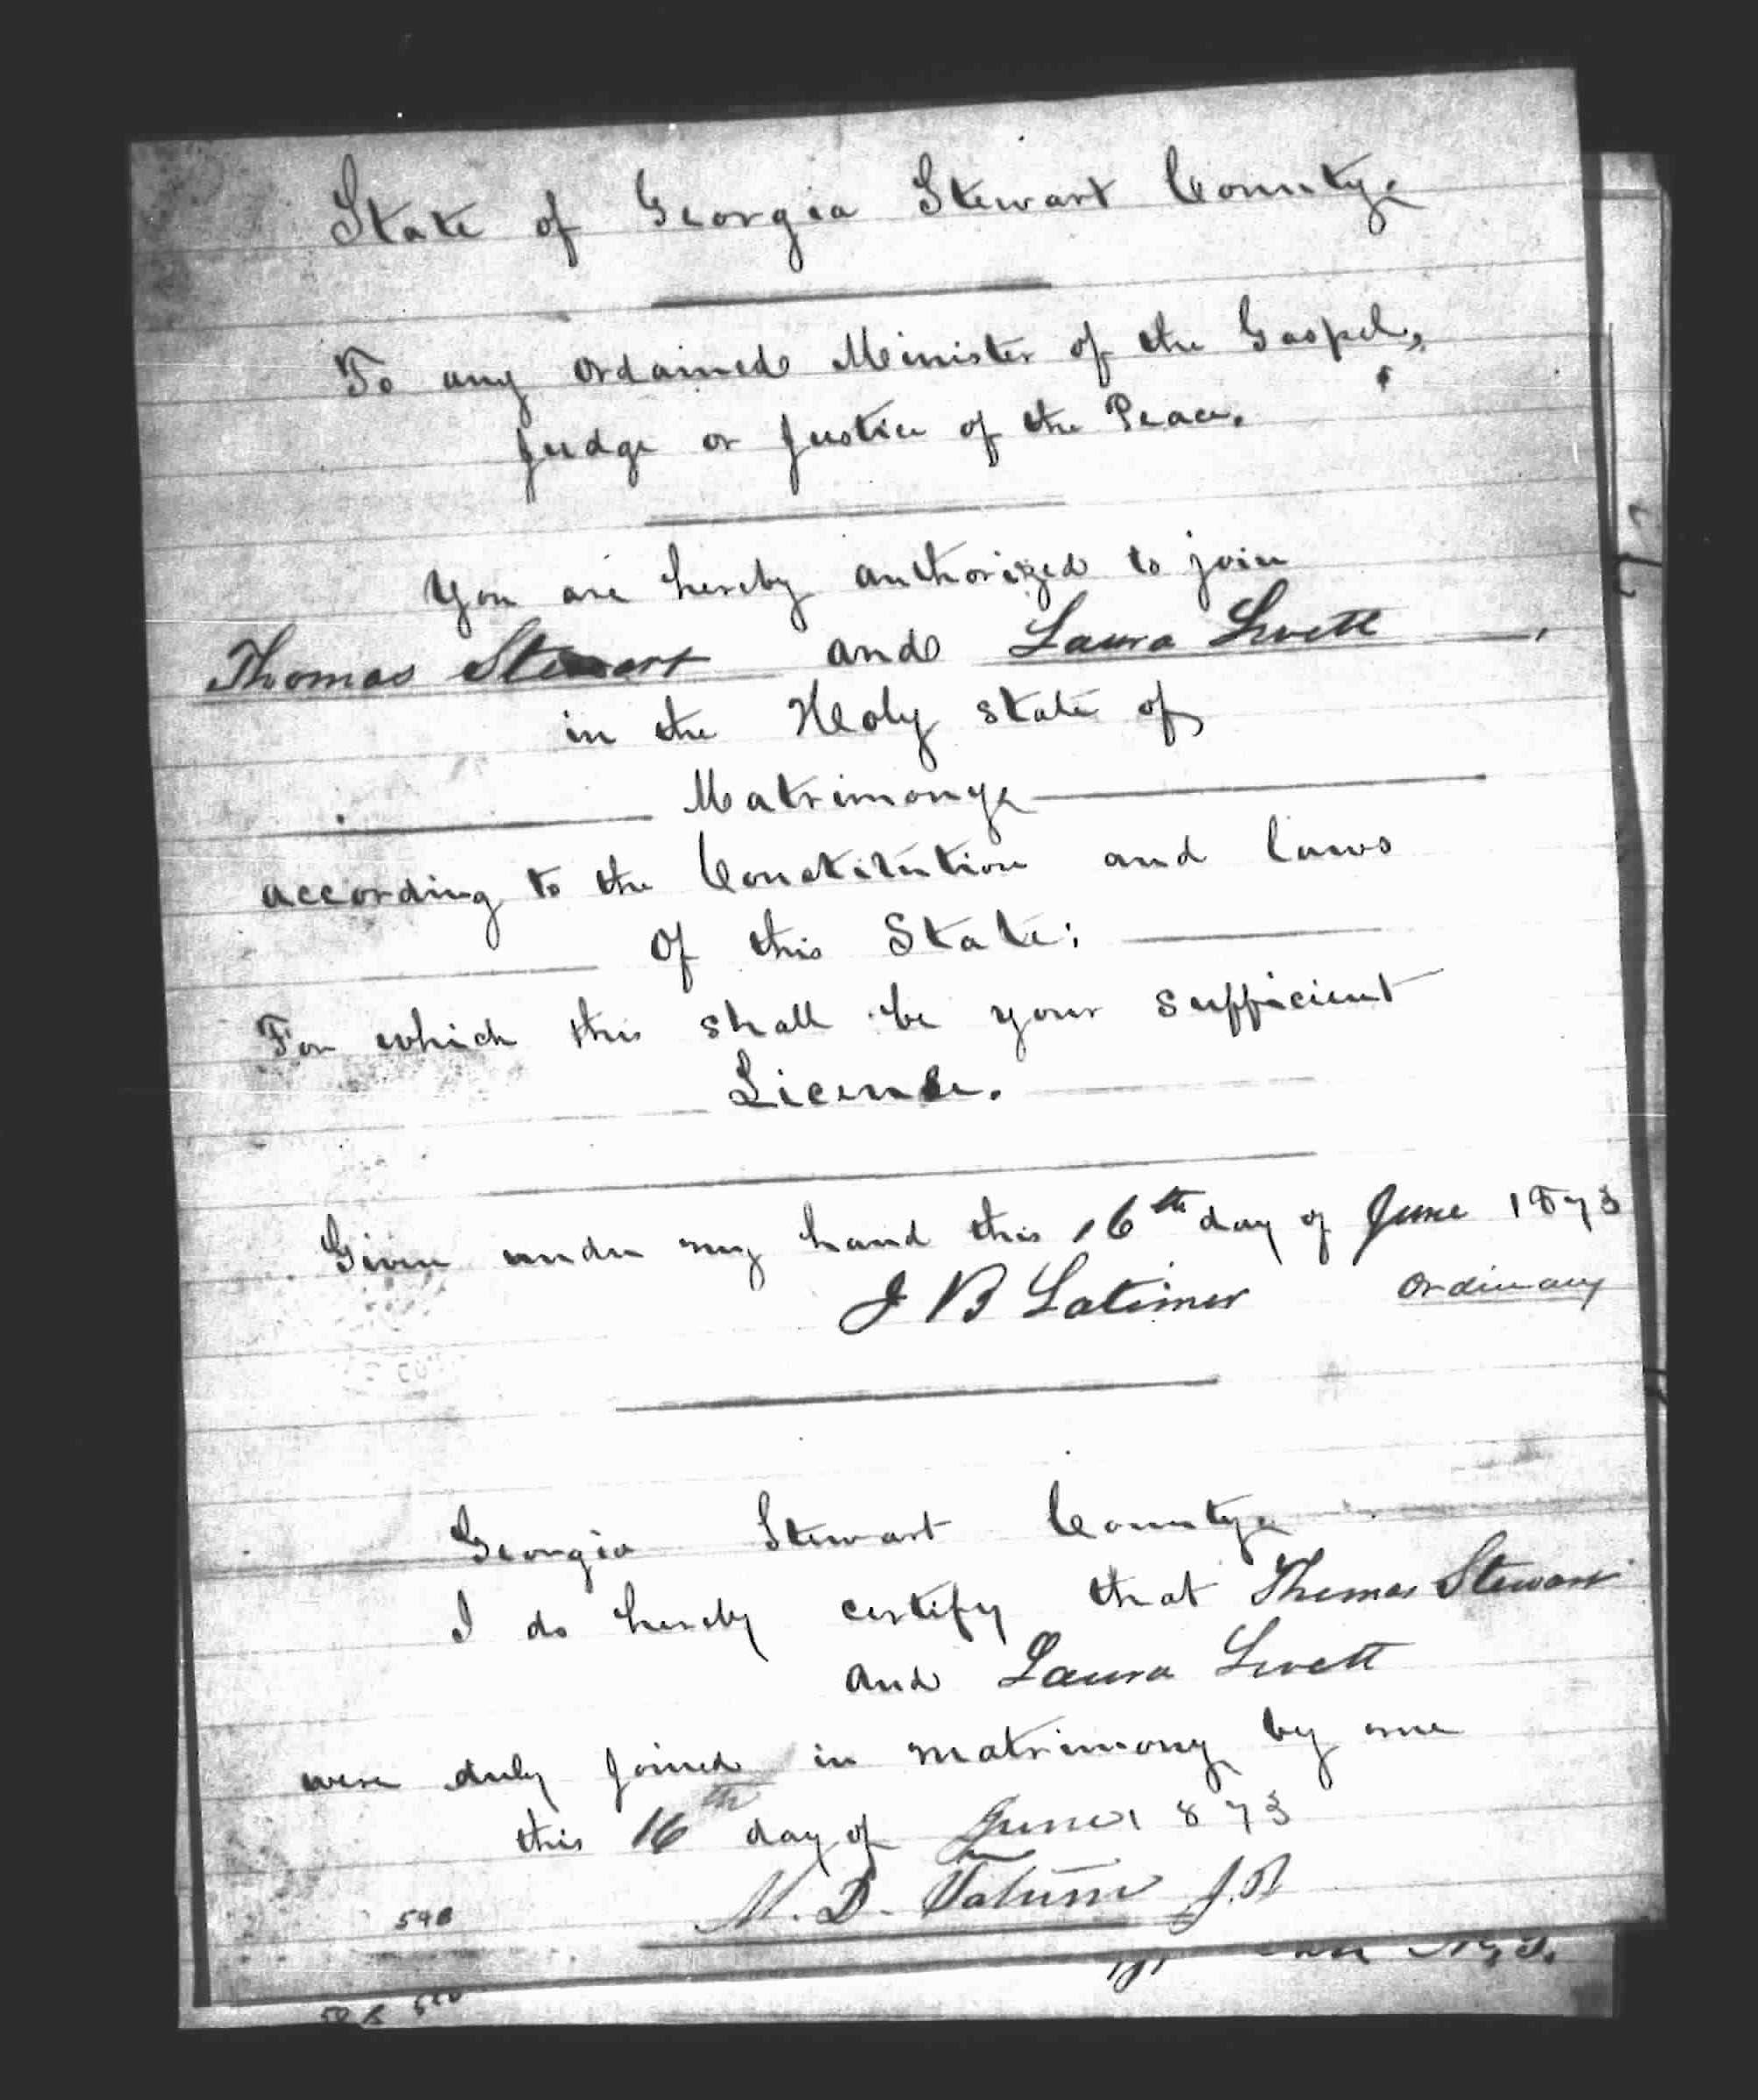 State of Georgia Stewart County
To any ordained Minister of the Gospel,
Judge or Justice of the Peace.
You are hereby authorized to join
Thomas Stewart and Laura Livett
in the Holy state of
Matrimony
according to the Constitution and laws
of this State:
For which this shall be your sufficient
License.
Given under my hand this 16th day of June 1873
J B Latimer Ordinary
Georgia Stewart County
I do hereby certify that Thomas Stewart
and Laura Livett
were duly joined in matrimony by me
this 16th day of June 1873
M. D. Tatum J.P
598